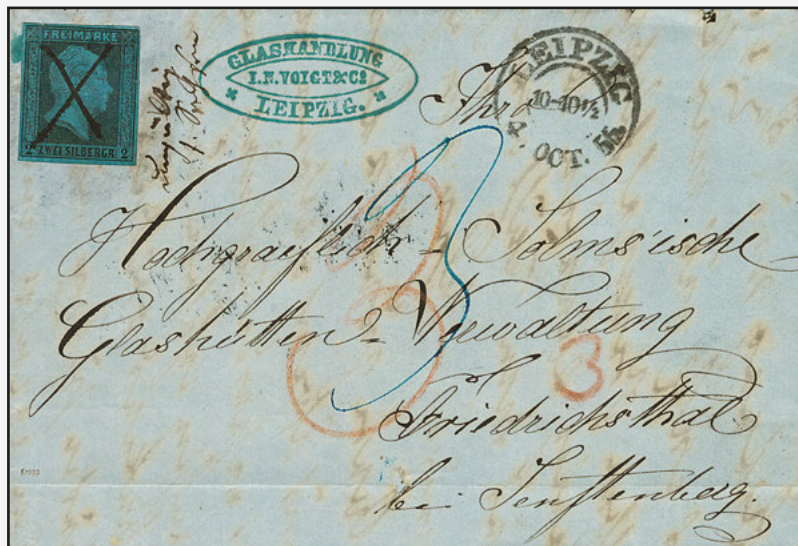 FREIMARKE
2 ZWEI SILBERGR. 2
GLASHANDLUNG
I.F. VOIGT & Cº
* LEIPZIG. *
LEIPZIG
10-10½
OCT. 56
Ihr
3
3
3
Hochgraeflich - Solms'ische
Glashütten - Verwaltung
Friedrichsthal
bei Senftenberg.